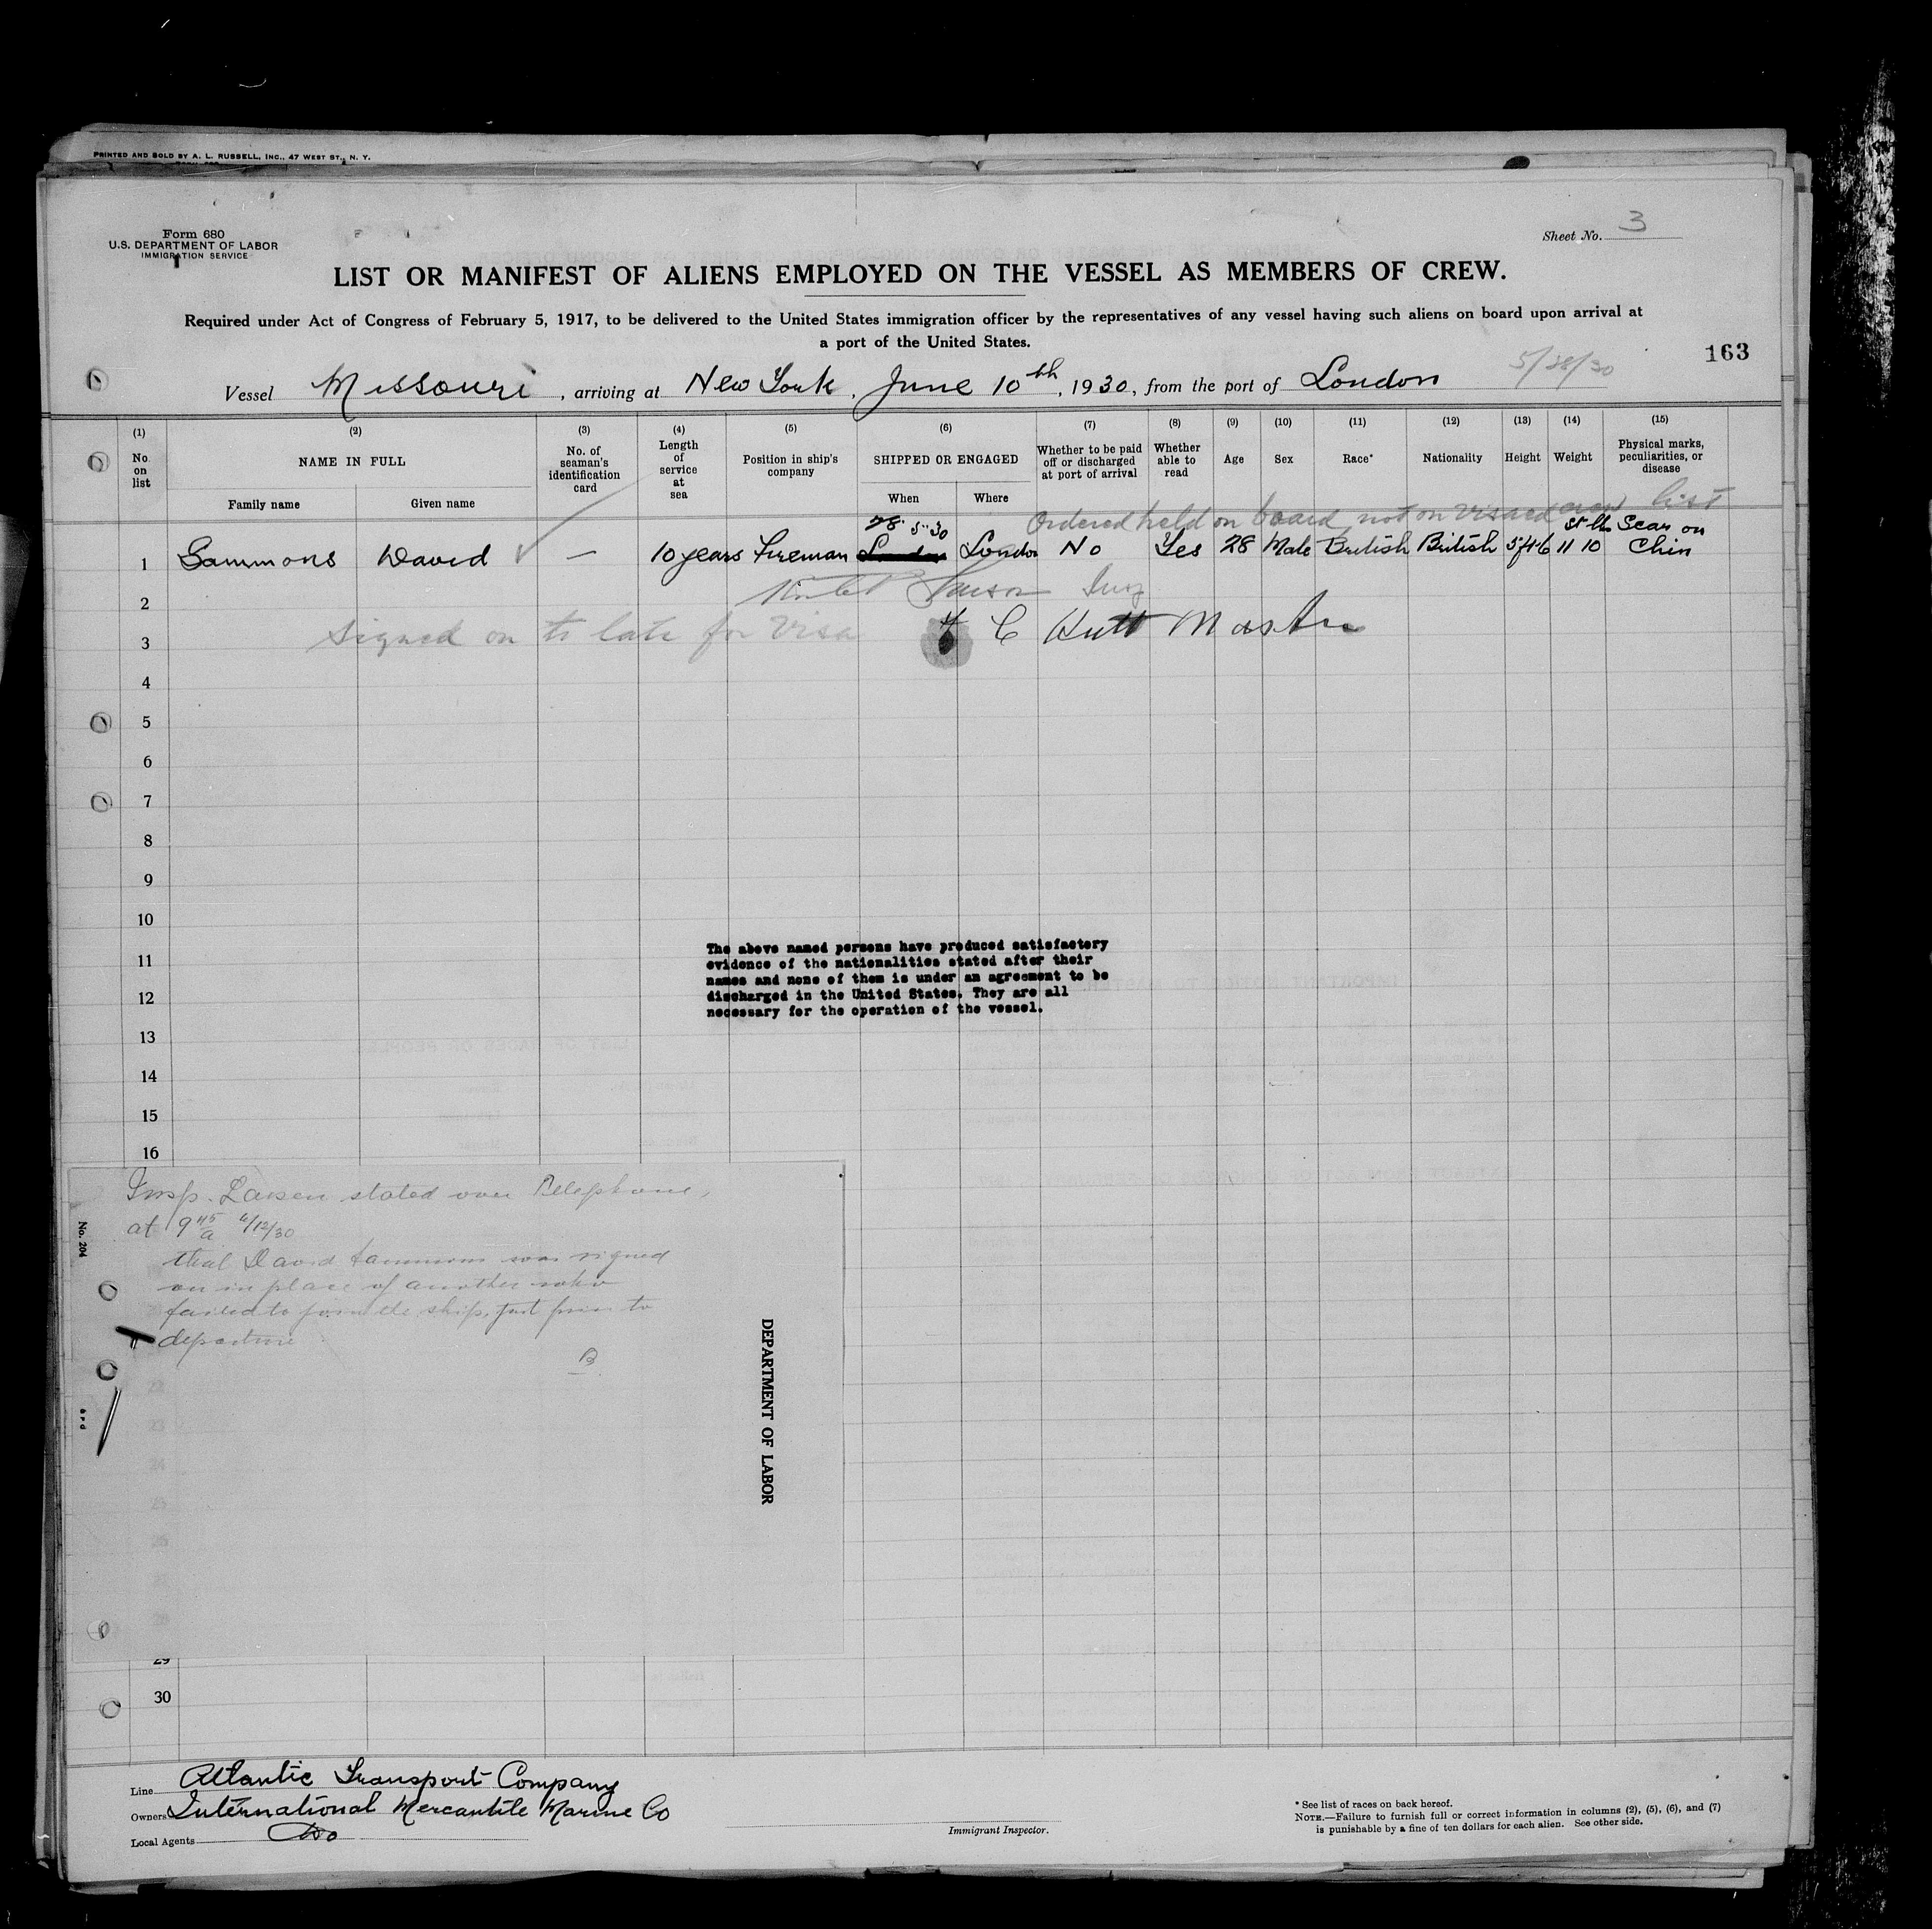 PRINTED AND SOLD BY A. L. RUSSELL, INC., 47 WEST ST., N. Y.
Form 680
U.S. DEPARTMENT OF LABOR
IMMIGRATION SERVICE
Sheet No. 3
LIST OR MANIFEST OF ALIENS EMPLOYED ON THE VESSEL AS MEMBERS OF CREW.
Required under Act of Congress of February 5, 1917, to be delivered to the United States immigration officer by the representatives of any vessel having such aliens on board upon arrival at
a port of the United States.
163
5/28/30
Vessel Missouri, arriving at New York, June 10th, 1930, from the port of London
(1) No. on list
(2) NAME IN FULL
Family name Given name
(3) No. of seaman's identification card
(4) Length of service at sea
(5) Position in ship's company
(6) SHIPPED OR ENGAGED
When Where
(7) Whether to be paid off or discharged at port of arrival
(8) Whether able to read
(9) Age
(10) Sex
(11) Race*
(12) Nationality
(13) Height
(14) Weight
(15) Physical marks, peculiarities, or disease
Ordered held on board not on visaed crew list
28 5 30 st lb Scar on
1 Sammons David — 10 years Fireman London No Yes 28 Male British British 5ft 6 11 10 Chin
2 Insp
3 signed on to late for visa C Hutt Master
4
5
6
7
8
9
10
11
12
13
14
15
16
The above named persons have produced satisfactory
evidence of the nationalities stated after their
names and none of them is under an agreement to be
discharged in the United States. They are all
necessary for the operation of the vessel.
Insp. Larsen stated over Telephone,
at 9 45 a 6/12/30
that David Sammons was signed
on in place of another who
failed to join the ship, just prior to
departure
B
No. 204
DEPARTMENT OF LABOR
22
23
24
25
26
29
30
Line Atlantic Transport Company
Owners International Mercantile Marine Co
Local Agents Do
Immigrant Inspector.
* See list of races on back hereof.
NOTE.—Failure to furnish full or correct information in columns (2), (5), (6), and (7)
is punishable by a fine of ten dollars for each alien. See other side.